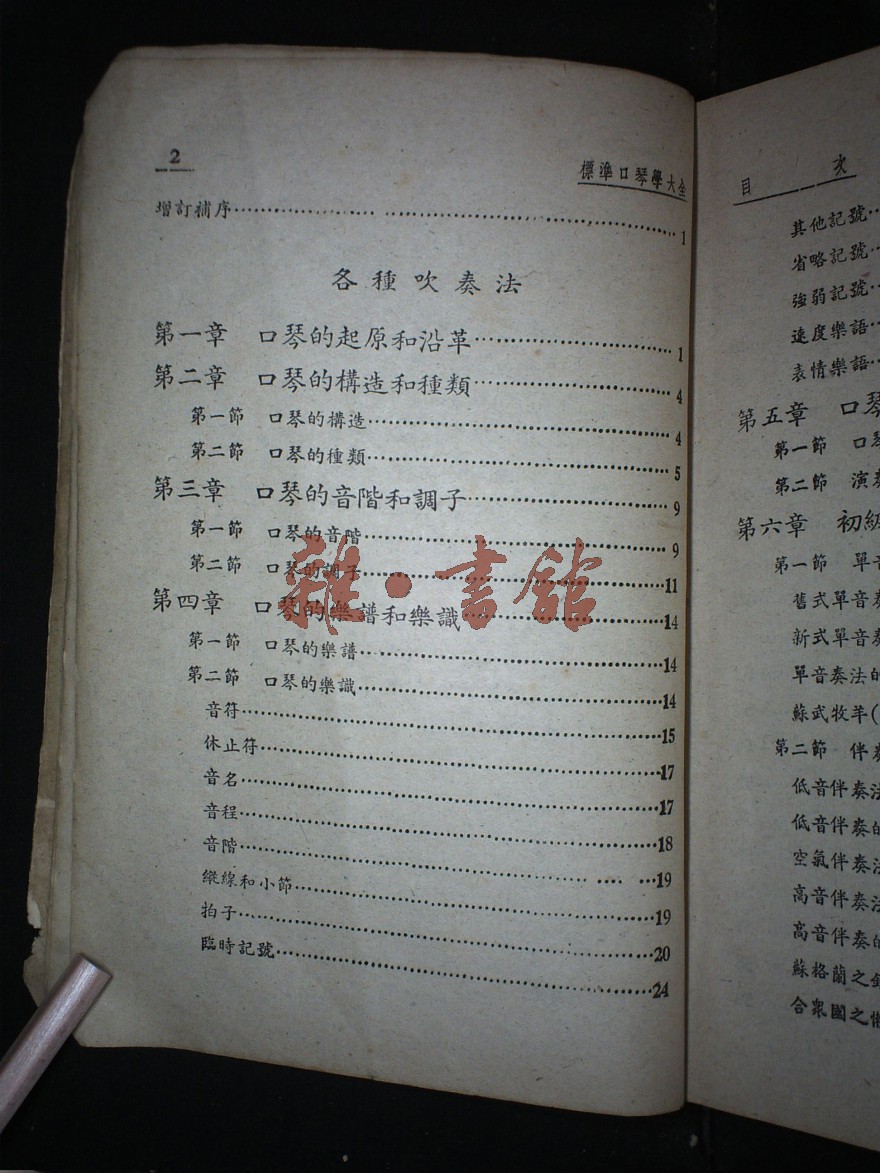 2
標準口琴學大全
增訂補序……1
各種吹奏法
第一章 口琴的起原和沿革……1
第二章 口琴的構造和種類……4
第一節 口琴的構造……4
第二節 口琴的種類……5
第三章 口琴的音階和調子……9
第一節 口琴的音階……9
第二節 口琴的調子……11
第四章 口琴的樂譜和樂識……14
第一節 口琴的樂譜……14
第二節 口琴的樂識……14
音符……15
休止符……17
音名……17
音程……18
音階……19
縱線和小節……19
拍子……20
臨時記號……24
雜·書館
目次
其他記號…
省略記號…
強弱記號…
速度樂語…
表情樂語…
第五章 口琴
第一節 口琴
第二節 演奏
第六章 初級
第一節 單音
舊式單音奏
新式單音奏
單音奏法的
蘇武牧羊(
第二節 伴奏
低音伴奏法
低音伴奏的
空氣伴奏法
高音伴奏法
高音伴奏的
蘇格蘭之
合眾國之